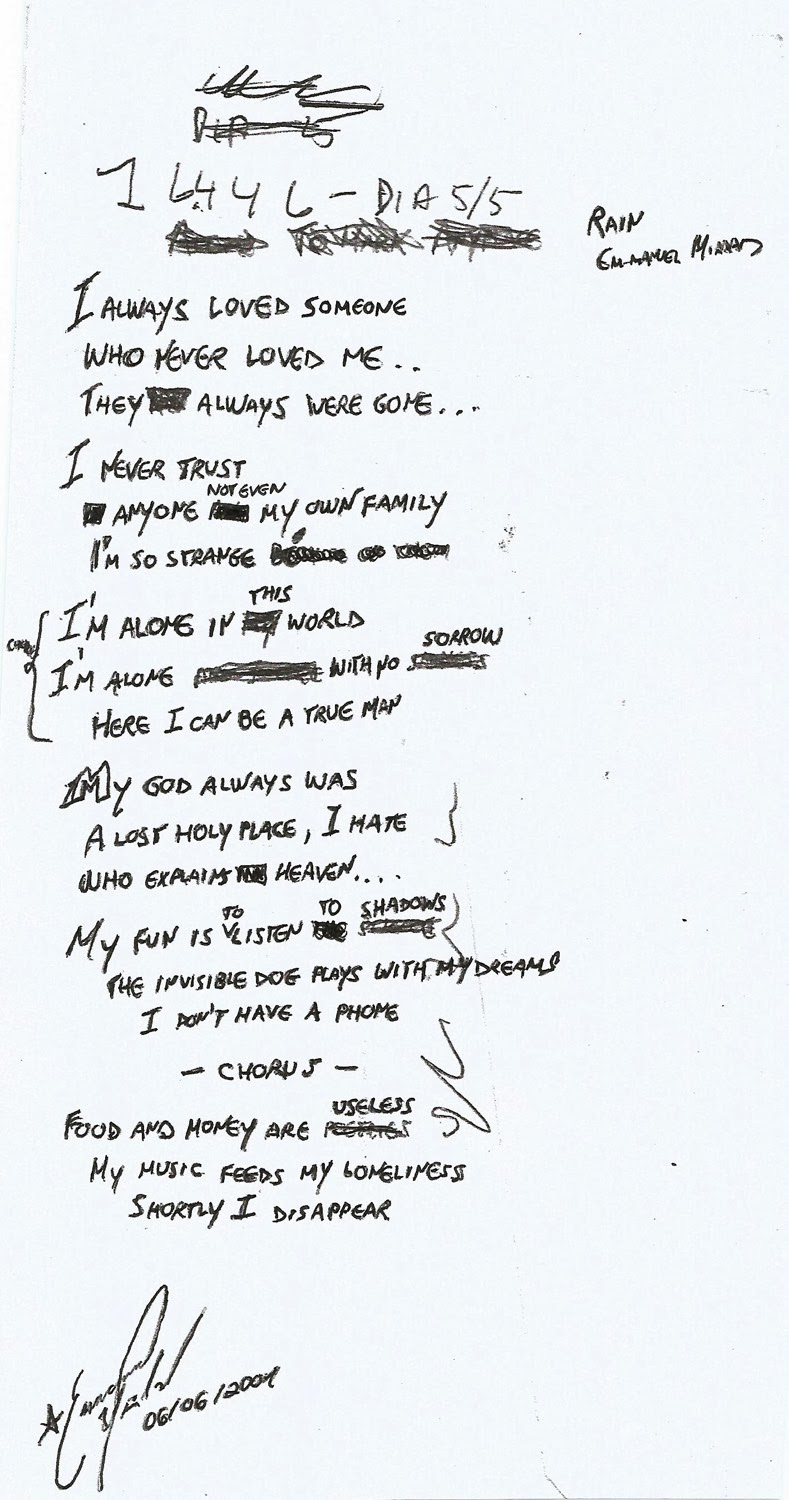 1 6446 - DIA 5/5
RAIN
EMMANUEL
I ALWAYS LOVED SOMEONE
WHO NEVER LOVED ME..
THEY ALWAYS WERE GONE...
I NEVER TRUST
ANYONE NOT EVEN MY OWN FAMILY
I'M SO STRANGE
I'M ALONE IN THIS WORLD
I'M ALONE WITH NO SORROW
HERE I CAN BE A TRUE MAN
MY GOD ALWAYS WAS
A LOST HOLY PLACE, I HATE
WHO EXPLAINS HEAVEN....
MY FUN IS TO LISTEN TO SHADOWS
THE INVISIBLE DOG PLAYS WITH MY DREAMS
I DON'T HAVE A PHONE
- CHORUS -
FOOD AND MONEY ARE USELESS
MY MUSIC FEEDS MY LONELINESS
SHORTLY I DISAPPEAR